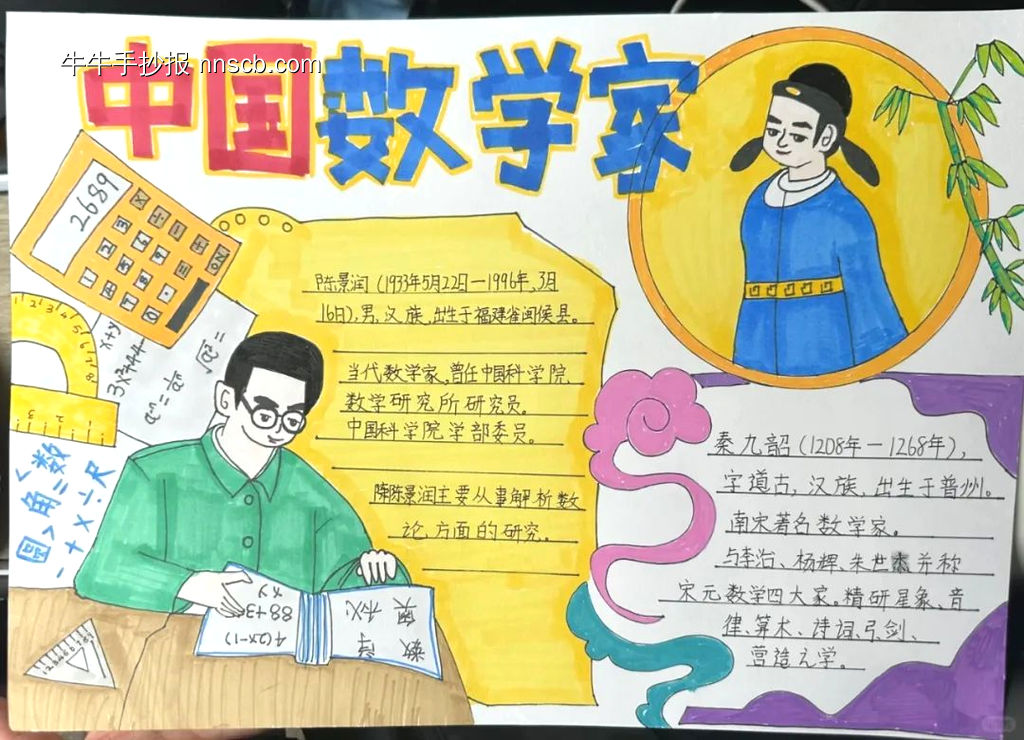 牛牛手抄报 nnscb.com
中国数学家
2689
陈景润(1933年5月22日—1996年,3月
16日),男,汉族,出生于福建省闽侯县。
当代数学家,曾任中国科学院
数学研究所研究员。
中国科学院学部委员。
陈景润主要从事解析数
论方面的研究。
秦九韶(1208年—1268年),
字道古,汉族,出生于普州。
南宋著名数学家。
与李冶、杨辉、朱世杰并称
宋元数学四大家。精研星象、音
律、算术、诗词、弓剑、
营造之学。
x+y
<数
圆>角=
-+×÷尺
88+3
xy
4(x-1)
数学
奥秘